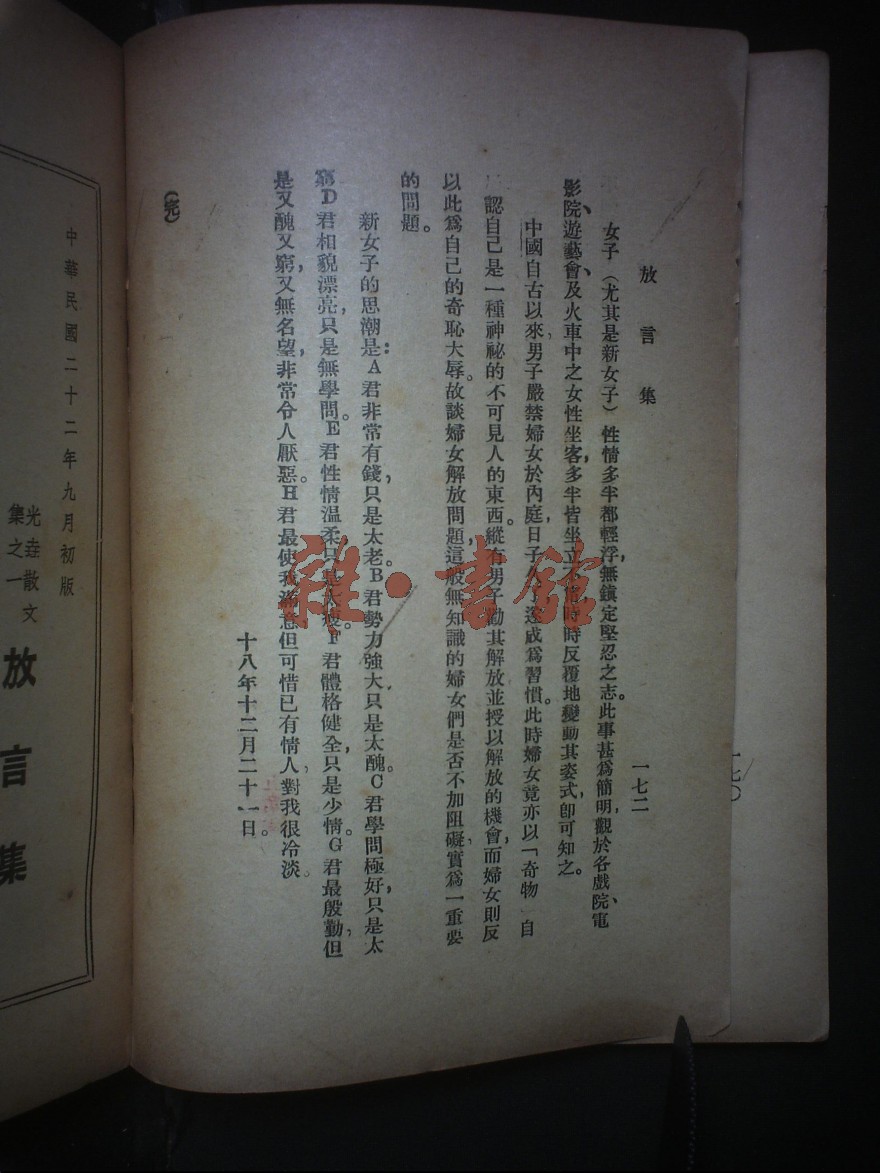 一七〇
放言集
一七二
女子（尤其是新女子）性情多半都輕浮，無鎮定堅忍之志。此事甚爲簡明，觀於各戲院、電
影院、遊藝會、及火車中之女性坐客，多半皆坐立不寧，時時反覆地變動其姿式，卽可知之。
中國自古以來，男子嚴禁婦女於內庭，日子久了，遂成爲習慣。此時婦女竟亦以「奇物」自
認自己是一種神祕的不可見人的東西。縱有男子勸其解放並授以解放的機會，而婦女則反
以此爲自己的奇恥大辱。故談婦女解放問題，這般無知識的婦女們是否不加阻礙，實爲一重要
的問題。
新女子的思潮是：A君非常有錢，只是太老。B君勢力強大，只是太醜。C君學問極好，只是太
窮。D君相貌漂亮，只是無學問。E君性情溫柔，只是太瘦。F君體格健全，只是少情。G君最殷勤，但
是又醜又窮，又無名望，非常令人厭惡。H君最使我滿意，但可惜已有情人，對我很冷淡。
十八年十二月二十一日。
（完）
中華民國二十二年九月初版
光垚散文
集之一
放言集
雜·書館